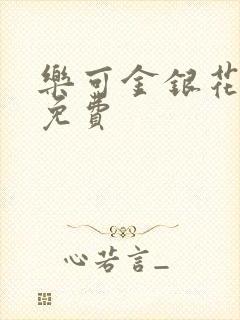 樂可金銀花
免費
心若言_